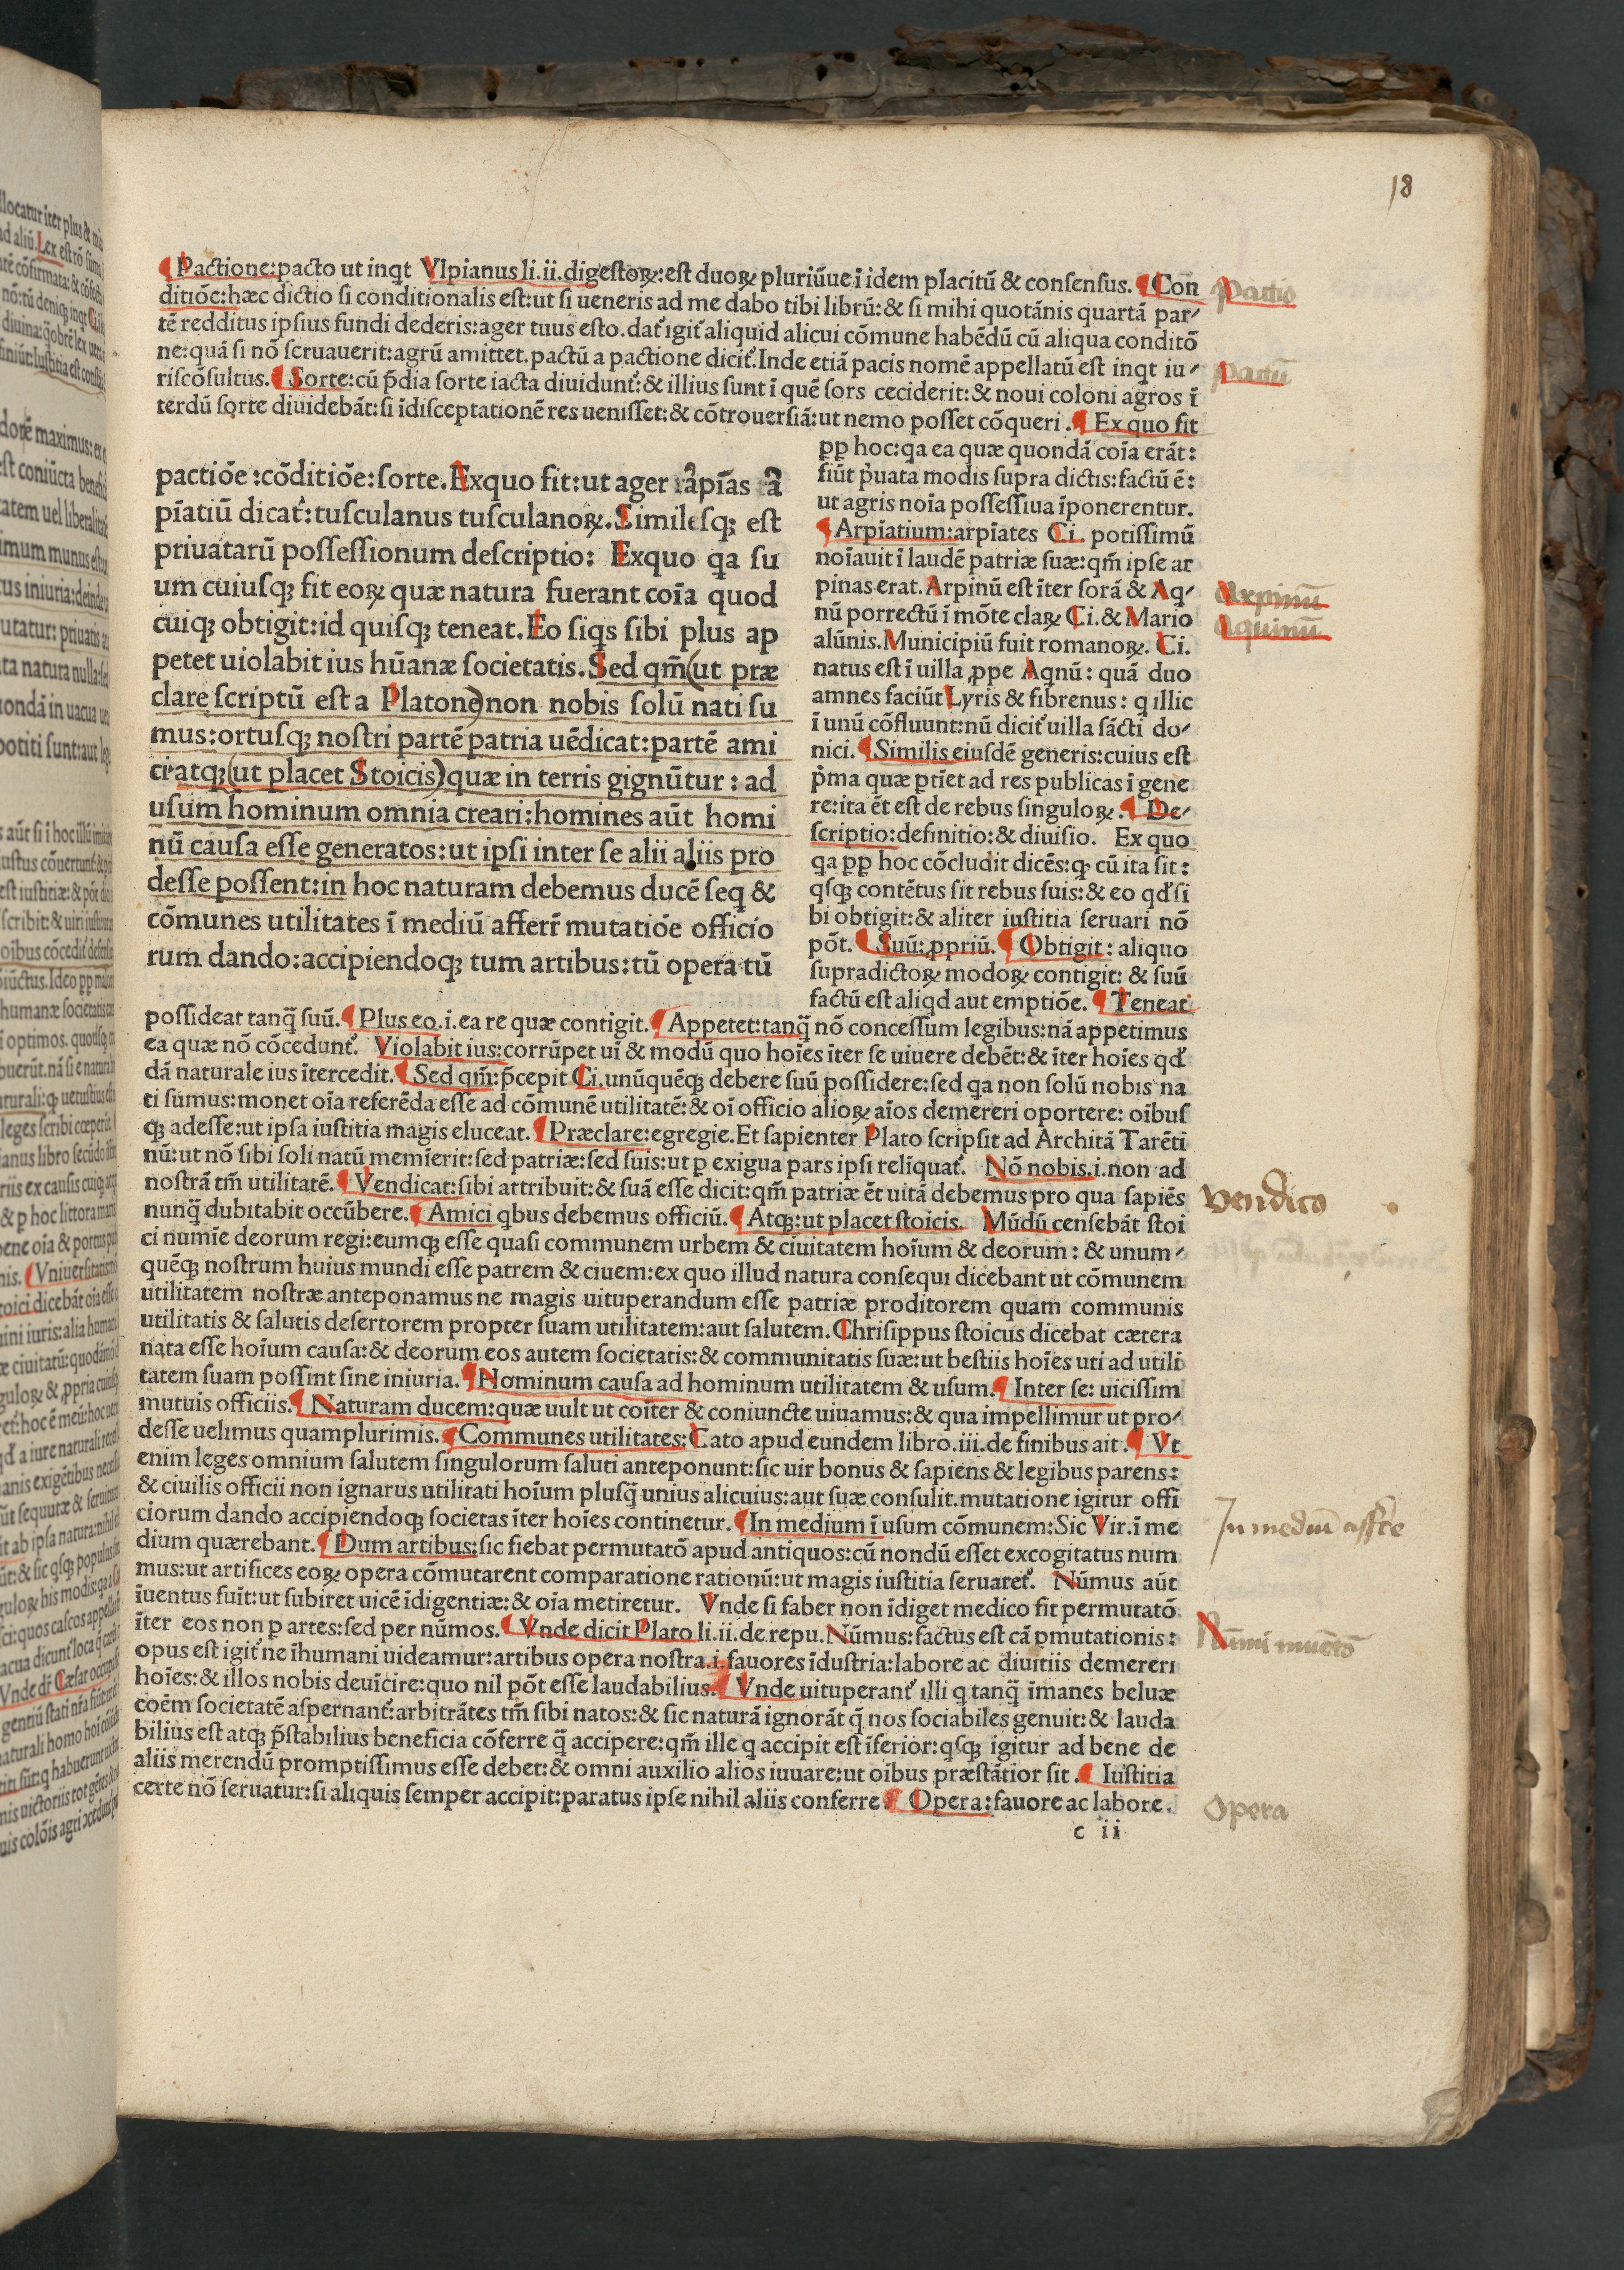 18
¶ Pactione:pacto ut inqt Vlpianus li.ii.digestoꝝ:est duoꝝ pluriūue ī idem placitū & consensus. ¶ Con
ditiõe:hæc dictio si conditionalis est:ut si ueneris ad me dabo tibi librū:& si mihi quotānis quartā par-
tē redditus ipsius fundi dederis:ager tuus esto.dat᷑ igit᷑ aliquid alicui cōmune habēdū cū aliqua conditō
ne:quā si nō seruauerit:agrū amittet.pactū a pactione dicit᷑.Inde etiā pacis nomē appellatū est inqt iu-
riscōsultus. ¶ Sorte:cū p̄dia sorte iacta diuidunt᷑:& illius sunt ī quē sors ceciderit:& noui coloni agros ī
terdū sorte diuidebāt:si īdisceptationē res uenisset:& cōtrouersiā:ut nemo posset cōqueri. ¶ Ex quo fit
pactiōe:cōditiōe:sorte.Exquo fit:ut ager
pīatiū dicat᷑:tusculanus tusculanoꝝ.Similesqꝫ est
priuatarū possessionum descriptio: Exquo qa su
um cuiusqꝫ fit eoꝝ quæ natura fuerant coīa quod
cuiqꝫ obtigit:id quisqꝫ teneat.Eo siqs sibi plus ap
petet uiolabit ius hūanæ societatis.Sed qm̄(ut præ
clare scriptū est a Platone)non nobis solū nati su
mus:ortusqꝫ nostri partē patria uēdicat:partē ami
ci atqꝫ(ut placet Stoicis)quæ in terris gignūtur: ad
usum hominum omnia creari:homines aūt homi
nū causa esse generatos:ut ipsi inter se alii aliis pro
desse possent:in hoc naturam debemus ducē seq &
cōmunes utilitates ī mediū afferr̄ mutatiōe officio
rum dando:accipiendoqꝫ tum artibus:tū opera tū
ꝓp hoc:qa ea quæ quondā coīa erāt:
fiūt p̓uata modis supra dictis:factū ē:
ut agris noīa possessiua īponerentur.
¶ Arpiatium:arpiates Ci. potissimū
noīauit ī laudē patriæ suæ:qm̄ ipse ar
pinas erat.Arpinū est īter sorā & Aq-
nū porrectū ī mōte claꝝ Ci.& Mario
alūnis.Municipiū fuit romanoꝝ. Ci.
natus est ī uilla ꝓpe Aqnū: quā duo
amnes faciūt Lyris & fibrenus: q illic
ī unū cōfluunt:nū dicit᷑ uilla sācti do-
nici. ¶ Similis eiusdē generis:cuius est
p̓ma quæ ꝑtīet ad res publicas ī gene
re:ita ēt est de rebus singuloꝝ. ¶ De-
scriptio:definitio:& diuisio. Ex quo
qa ꝓp hoc cōcludit dicēs:qꝫ cū ita sit:
qsqꝫ contētus sit rebus suis:& eo qd̓ si
bi obtigit:& aliter iustitia seruari nō
pōt. ¶ Suū:ꝓpriū. ¶ Obtigit: aliquo
supradictoꝝ modoꝝ contigit: & suū
factū est aliqd aut emptiōe. ¶ Teneat
possideat tanq̄ suū. ¶ Plus eo.i.ea re quæ contigit. ¶ Appetet:tanq̄ nō concessum legibus:nā appetimus
ea quæ nō cōcedunt᷑. Violabit ius:corrūpet uī & modū quo hoīes īter se uiuere debēt:& īter hoīes qd̓
dā naturale ius ītercedit. ¶ Sed qm̄:p̄cepit Ci.unūquēqꝫ debere suū possidere:sed qa non solū nobis na
ti sumus:monet oīa referēda esse ad cōmunē utilitatē:& oī officio alioꝝ aīos demereri oportere: oībus
qꝫ adesse:ut ipsa iustitia magis eluceat. ¶ Præclare:egregie.Et sapienter Plato scripsit ad Architā Tarēti
nū:ut nō sibi soli natū memīerit:sed patriæ:sed suis:ut ꝑ exigua pars ipsi relīquat᷑. Nō nobis.i.non ad
nostrā tm̄ utilitatē. ¶ Vendicat:sibi attribuit:& suā esse dicit:qm̄ patriæ ēt uitā debemus pro qua sapiēs
nunq̄ dubitabit occūbere. ¶ Amici qbus debemus officiū. ¶ Atqꝫ:ut placet stoicis. Mūdū censebāt stoi
ci numīe deorum regi:eumqꝫ esse quasi communem urbem & ciuitatem hoīum & deorum: & unum-
quēqꝫ nostrum huius mundi esse patrem & ciuem:ex quo illud natura consequi dicebant ut cōmunem
utilitatem nostræ anteponamus ne magis uituperandum esse patriæ proditorem quam communis
utilitatis & salutis desertorem propter suam utilitatem:aut salutem.Chrisippus stoicus dicebat cætera
nata esse hoīum causa:& deorum eos autem societatis:& communitatis suæ:ut bestiis hoīes uti ad utili
tatem suam possint sine iniuria. ¶ Hominum causa ad hominum utilitatem & usum. ¶ Inter se: uicissim
mutuis officiis. ¶ Naturam ducem:quæ uult ut coīter & coniuncte uiuamus:& qua impellimur ut pro-
desse uelimus quamplurimis. ¶ Communes utilitates:Cato apud eundem libro.iii.de finibus ait. ¶ Vt
enim leges omnium salutem singulorum saluti anteponunt:sic uir bonus & sapiens & legibus parens:
& ciuilis officii non ignarus utilitati hoīum plusq̄ unius alicuius:aut suæ consulit.mutatione igitur offi
ciorum dando accipiendoqꝫ societas īter hoīes continetur. ¶ In medium ī usum cōmunem:Sic Vir.ī me
dium quærebant. ¶ Dum artibus:sic fiebat permutatō apud antiquos:cū nondū esset excogitatus num
mus:ut artifices eoꝝ opera cōmutarent comparatione rationū:ut magis iustitia seruaret᷑. Nūmus aūt
īuentus fuit:ut subiret uicē īdigentiæ:& oīa metiretur. Vnde si faber non īdiget medico fit permutatō
īter eos non ꝑ artes:sed per nūmos. ¶ Vnde dicit Plato li.ii.de repu.Nūmus:factus est cā ꝑmutationis:
opus est igit᷑ ne īhumani uideamur:artibus opera nostra.i.fauores īdustria:labore ac diuitiis demereri
hoīes:& illos nobis deuīcire:quo nil pōt esse laudabilius. ¶ Vnde uituperant᷑ illi q tanq̄ īmanes beluæ
coēm societatē aspernant᷑:arbitrātes tm̄ sibi natos:& sic naturā ignorāt q̄ nos sociabiles genuit:& lauda
bilius est atqꝫ p̄stabilius beneficia cōferre q̄ accipere:qm̄ ille q accipit est īferior:qsqꝫ igitur ad bene de
aliis merendū promptissimus esse debet:& omni auxilio alios iuuare:ut oībus præstātior sit. ¶ Iustitia
certe nō seruatur:si aliquis semper accipit:paratus ipse nihil aliis conferre ¶ Opera:fauore ac labore.
c ii
Pactio
Pactū
Arpinū
Aquinū
Vendico
In mediū afferre
Nūmi inuētō
Opera